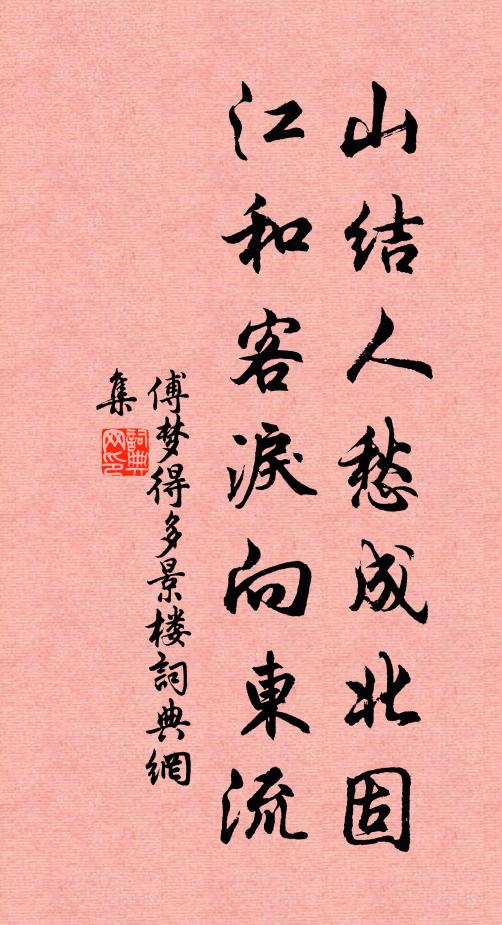 山结人愁成北固
江和客淚向東流
傅梦得多景楼詞典網
集
詞典网印